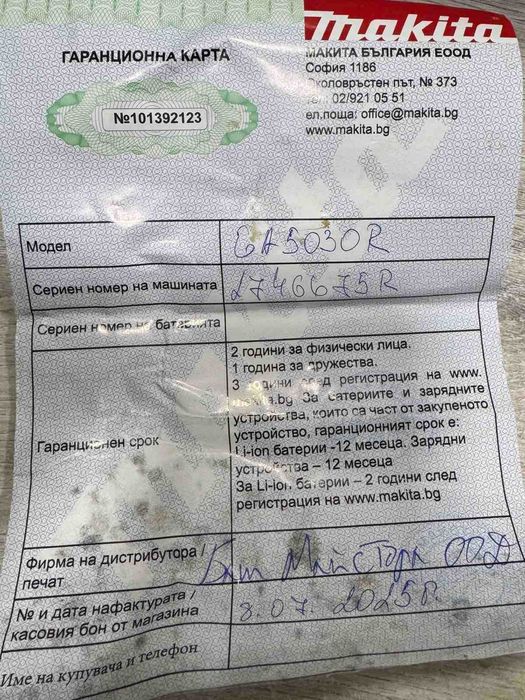 makita
ГАРАНЦИОННА КАРТА
№101392123
МАКИТА БЪЛГАРИЯ ЕООД
София 1186
Околовръстен път, № 373
тел. 02/921 05 51
ел.поща: office@makita.bg
www.makita.bg
Модел GA5030R
Сериен номер на машината 2746675R
Сериен номер на батерията
Гаранционен срок
2 години за физически лица.
1 година за дружества.
3 години след регистрация на www.
makita.bg. За батериите и зарядните
устройства, които са част от закупеното
устройство, гаранционният срок е:
Li-ion батерии -12 месеца. Зарядни
устройства – 12 месеца
За Li-ion батерии – 2 години след
регистрация на www.makita.bg
Фирма на дистрибутора /
печат
Бат Майстора ООД
№ и дата нафактурата /
касовия бон от магазина
8.07.2025г.
Име на купувача и телефон